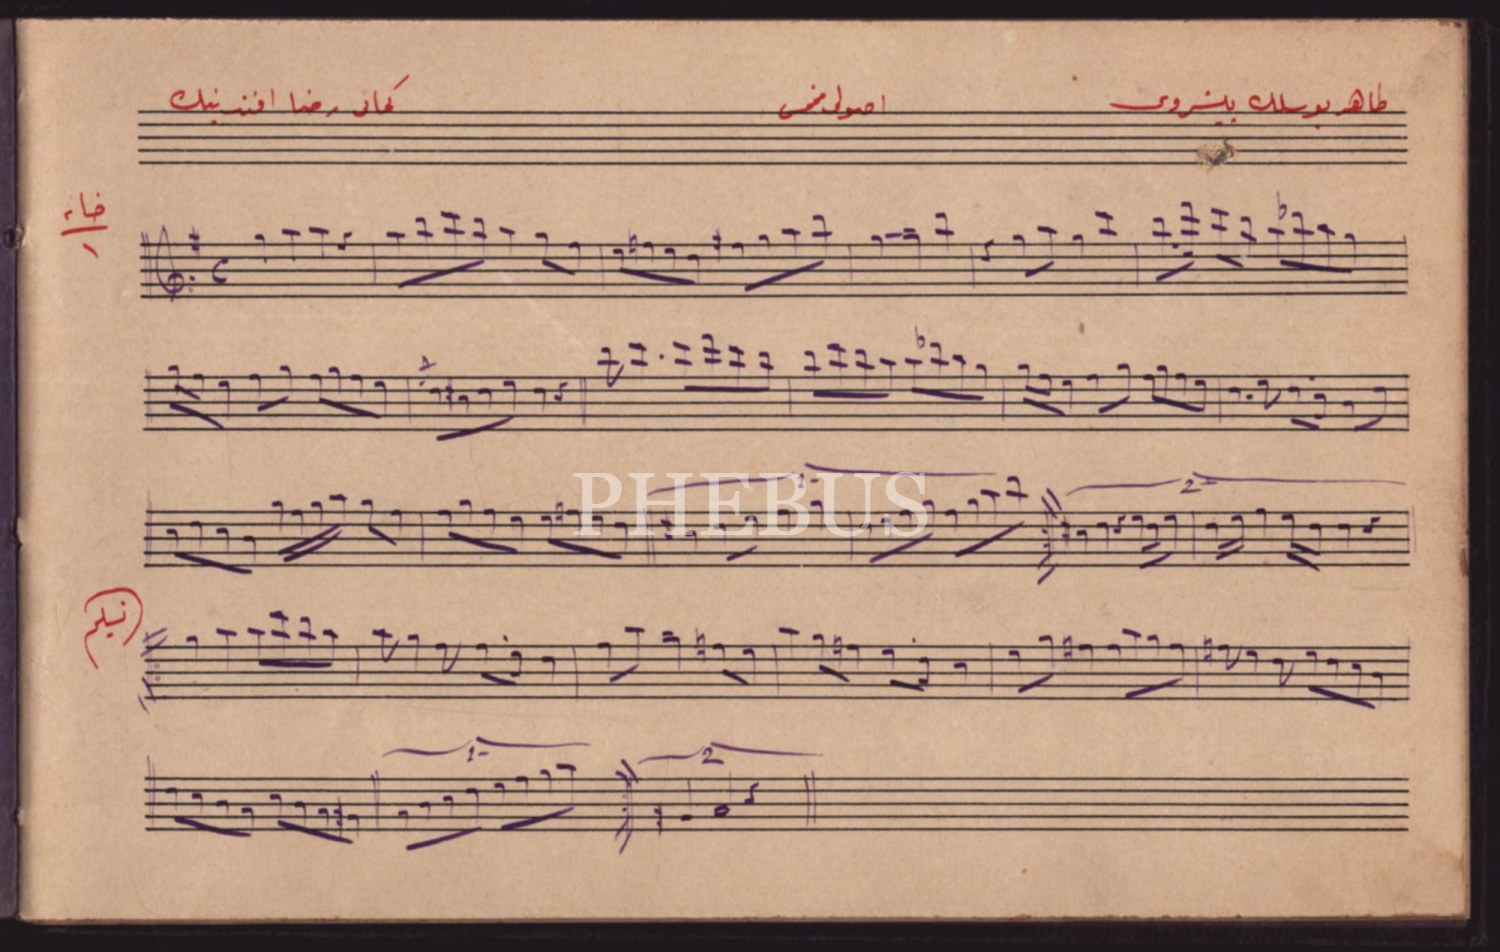 طاهر بوسلك پیشروی اصولی مخمس كمانی رضا افندینك
خانه
١
PHEBUS
1-
2-
1-
2